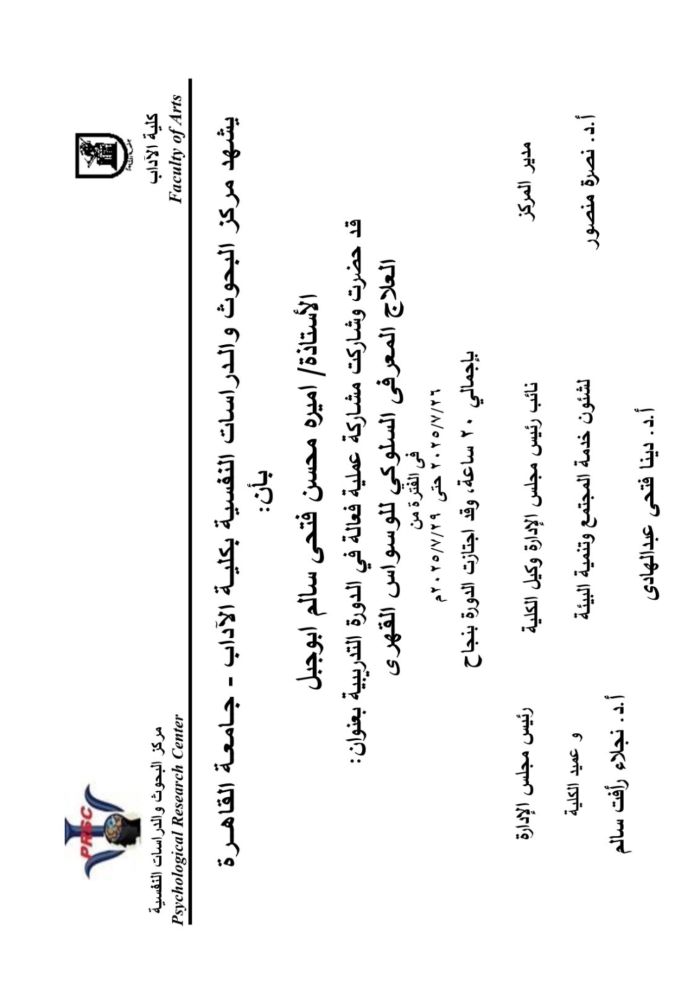 كلية الآداب
Faculty of Arts
PRSC
مركز البحوث والدراسات النفسية
Psychological Research Center
يشهد مركز البحوث والدراسات النفسية بكلية الآداب - جامعة القاهرة
بأن:
الأستاذة/ اميره محسن فتحى سالم ابوجبل
قد حضرت وشاركت مشاركة عملية فعالة في الدورة التدريبية بعنوان:
العلاج المعرفى السلوكي للوسواس القهرى
فى الفترة من
٢٠٢٥/٧/٢٦ حتى ٢٠٢٥/٧/٢٩م
بإجمالي ٢٠ ساعة، وقد اجتازت الدورة بنجاح
مدير المركز
أ.د. نصرة منصور
نائب رئيس مجلس الإدارة وكيل الكلية
لشئون خدمة المجتمع وتنمية البيئة
أ.د. دينا فتحى عبدالهادى
رئيس مجلس الإدارة
و عميد الكلية
أ.د. نجلاء رأفت سالم